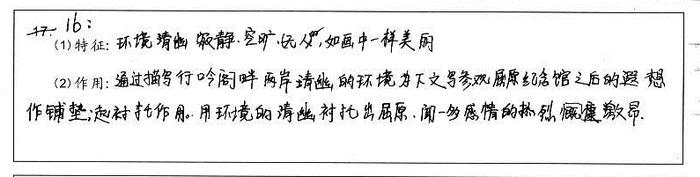 16:
(1)特征:环境清幽 寂静.空旷.无人,如画中一样美的
(2)作用:通过描写行吟阁畔两岸清幽的环境为下文写参观屈原纪念馆之后的遐想
作铺垫;起衬托作用。用环境的清幽衬托出屈原.闻一多感情的热烈慷慨激昂.